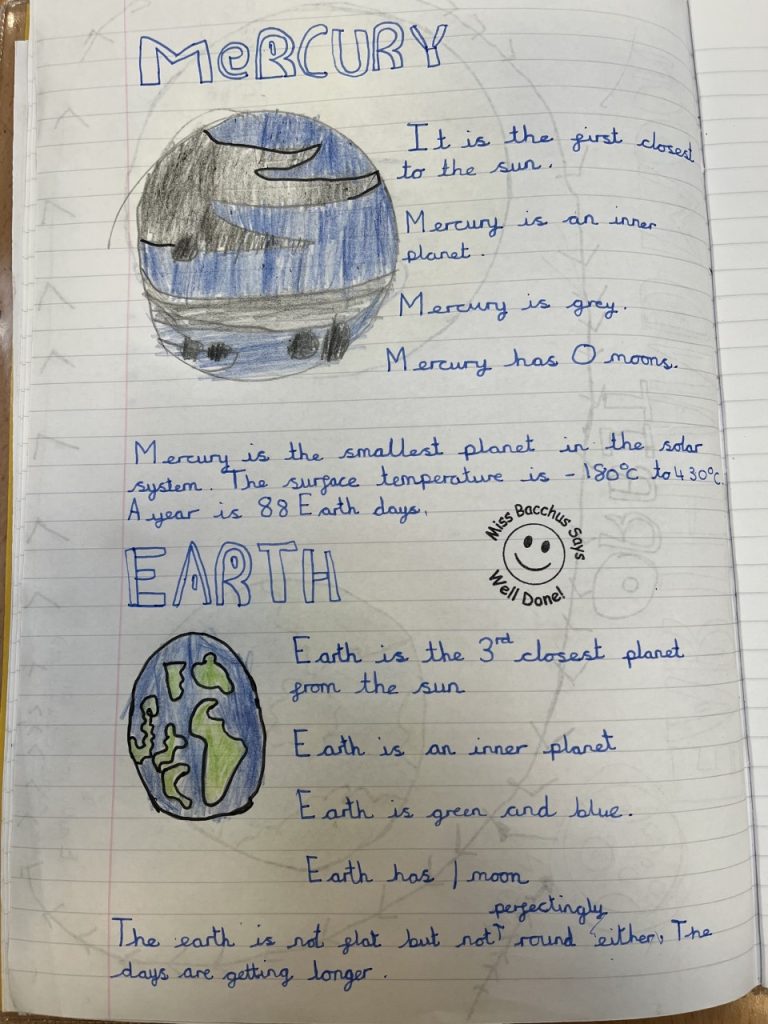 MeRCURY
It is the first closest
to the sun.
Mercury is an inner
planet.
Mercury is grey.
Mercury has 0 moons.
Mercury is the smallest planet in the solar
system. The surface temperature is -180°c to 430°c.
A year is 88 Earth days.
Miss Bacchus Says
Well Done!
EARTH
Earth is the 3rd closest planet
from the sun
Earth is an inner planet
Earth is green and blue.
Earth has 1 moon
perfectingly
The earth is not flat but not round either, The
days are getting longer.
ORBIT